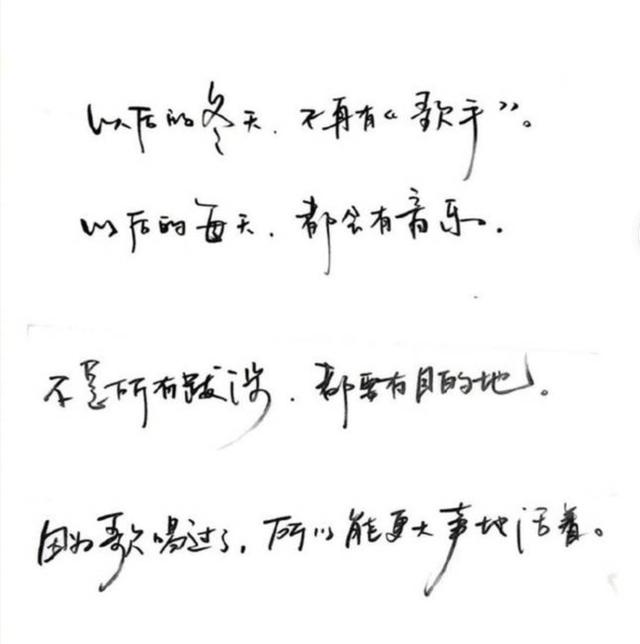 以后的冬天，不再有《歌手》。
以后的每天，都会有音乐。
不是所有跋涉，都要有目的地。
因为歌唱过了，所以能更大声地活着。